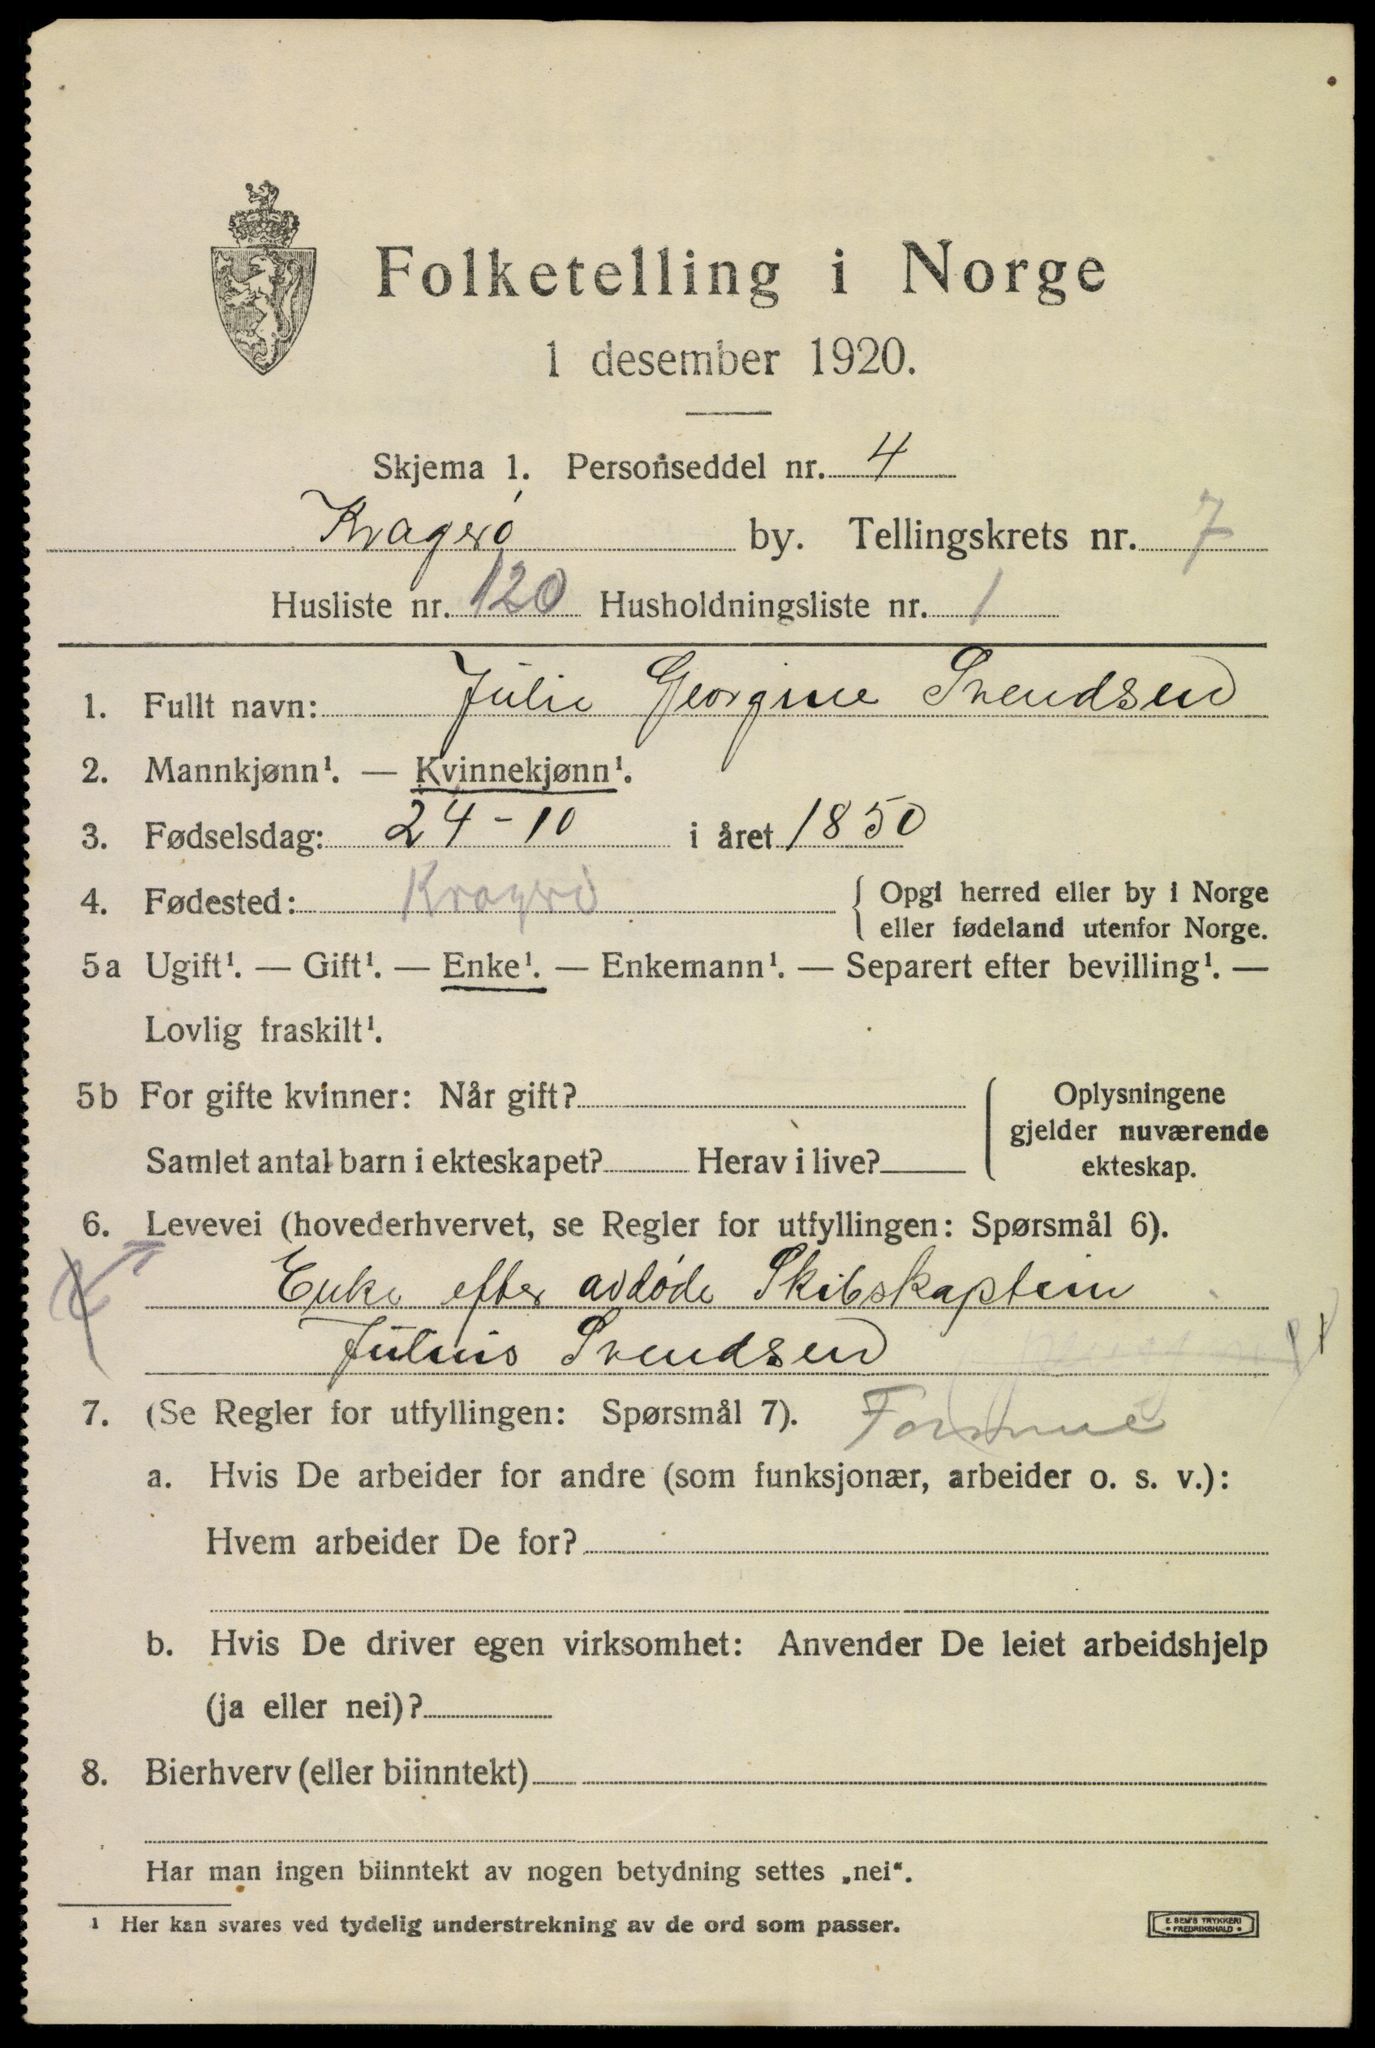 Folketelling i Norge
1 desember 1920.
Skjema 1. Personseddel nr. 4
Krageró by. Tellingskrets nr. 7
Husliste nr. 120 Husholdningsliste nr. 1
1. Fullt navn: Julie Georgine Svendsen
2. Mannkjønn¹. — Kvinnekjønn¹.
3. Fødselsdag: 24-10 i året 1850
4. Fødested: Kragerö { Opgi herred eller by i Norge
eller fødeland utenfor Norge.
5a Ugift¹. — Gift¹. — Enke¹. — Enkemann¹. — Separert efter bevilling¹. —
Lovlig fraskilt¹.
5b For gifte kvinner: Når gift? { Oplysningene
gjelder nuværende
Samlet antal barn i ekteskapet? Herav i live? ekteskap.
6. Levevei (hovederhvervet, se Regler for utfyllingen: Spørsmål 6).
Enke efter avdøde Skibskaptein
Julius Svendsen
7. (Se Regler for utfyllingen: Spørsmål 7). Formue
a. Hvis De arbeider for andre (som funksjonær, arbeider o. s. v.):
Hvem arbeider De for?
b. Hvis De driver egen virksomhet: Anvender De leiet arbeidshjelp
(ja eller nei)?
8. Bierhverv (eller biinntekt) —
Har man ingen biinntekt av nogen betydning settes „nei“.
¹ Her kan svares ved tydelig understrekning av de ord som passer.
E. SEM'S TRYKKERI
• FREDRIKSHALD •